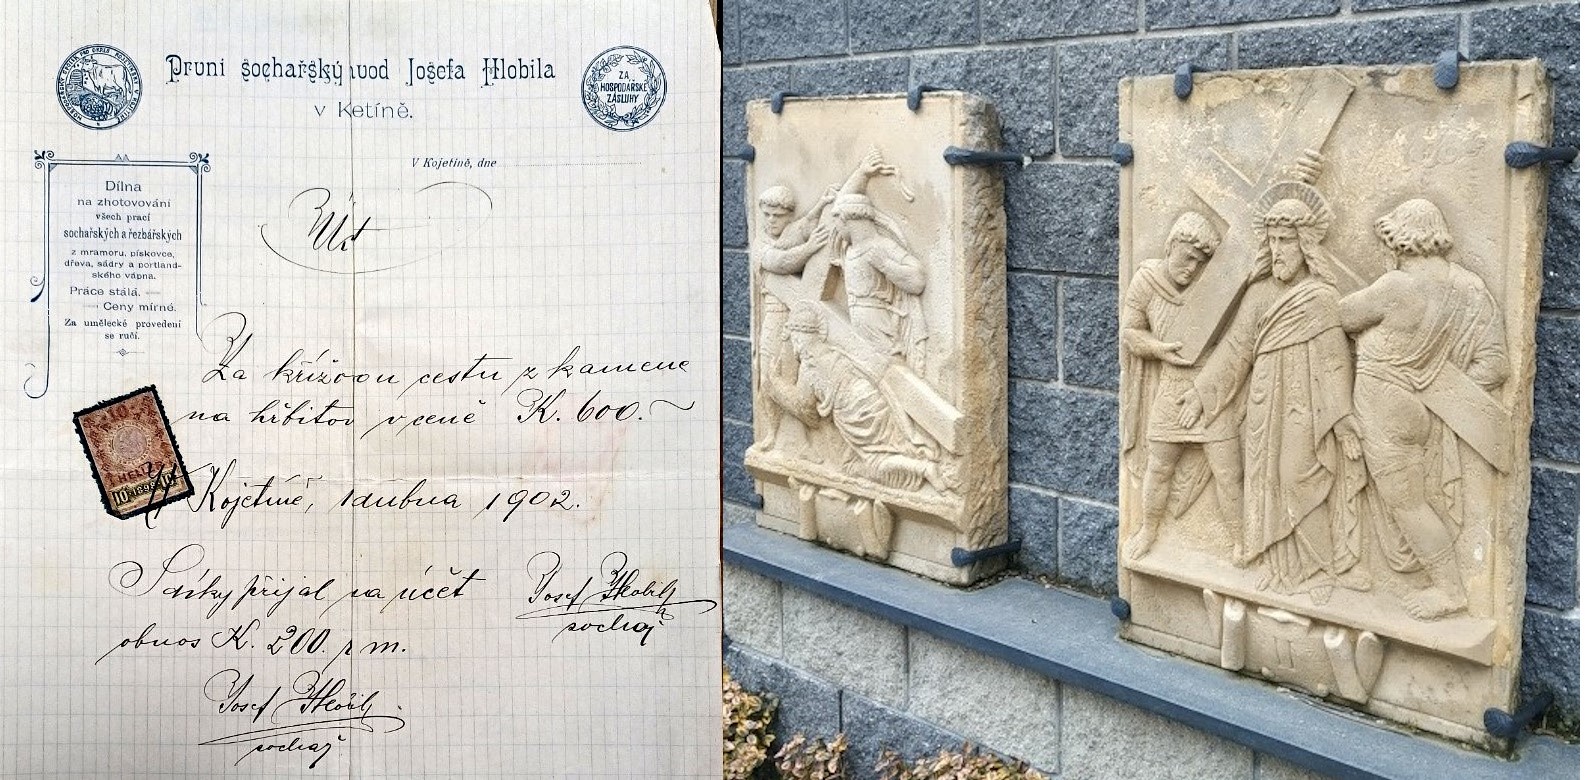 První sochařský závod Josefa Hlobila
v Kojetíně.
ZA
HOSPODÁŘSKÉ
ZÁSLUHY
V Kojetíně, dne
Dílna
na zhotovování
všech prací
sochařských a řezbářských
z mramoru, pískovce,
dřeva, sádry a portland-
ského vápna.
Práce stálá.
Ceny mírné.
Za umělecké provedení
se ručí.
Účet
Za křížovou cestu z kamene
na hřbitov v ceně K. 600.
10
1898
V Kojetíně, 1 dubna 1902.
S díky přijal na účet
obnos K. 200. r m.
Josef Hlobil
sochař
Josef Hlobil
sochař